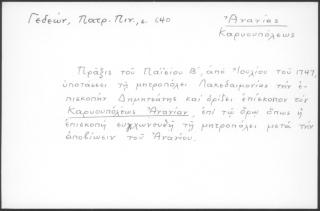 Γεδεών, Πατρ. Πιν., σ. 640
Ἀνανίας
Καρυουπόλεως
Πρᾶξις τοῦ Παϊσίου Β΄, ἀπὸ Ἰουλίου τοῦ 1747,
ὑποτάσσει τῇ μητροπόλει Λακεδαιμονίας τὴν ἐ-
πισκοπὴν Δημητσάνης καὶ ὁρίζει ἐπίσκοπον τὸν
Καρυουπόλεως Ἀνανίαν, ἐπὶ τῷ ὅρῳ ὅπως ἡ
ἐπισκοπὴ συγχωνευθῇ τῇ μητροπόλει μετὰ τὴν
ἀποβίωσιν τοῦ Ἀνανίου.